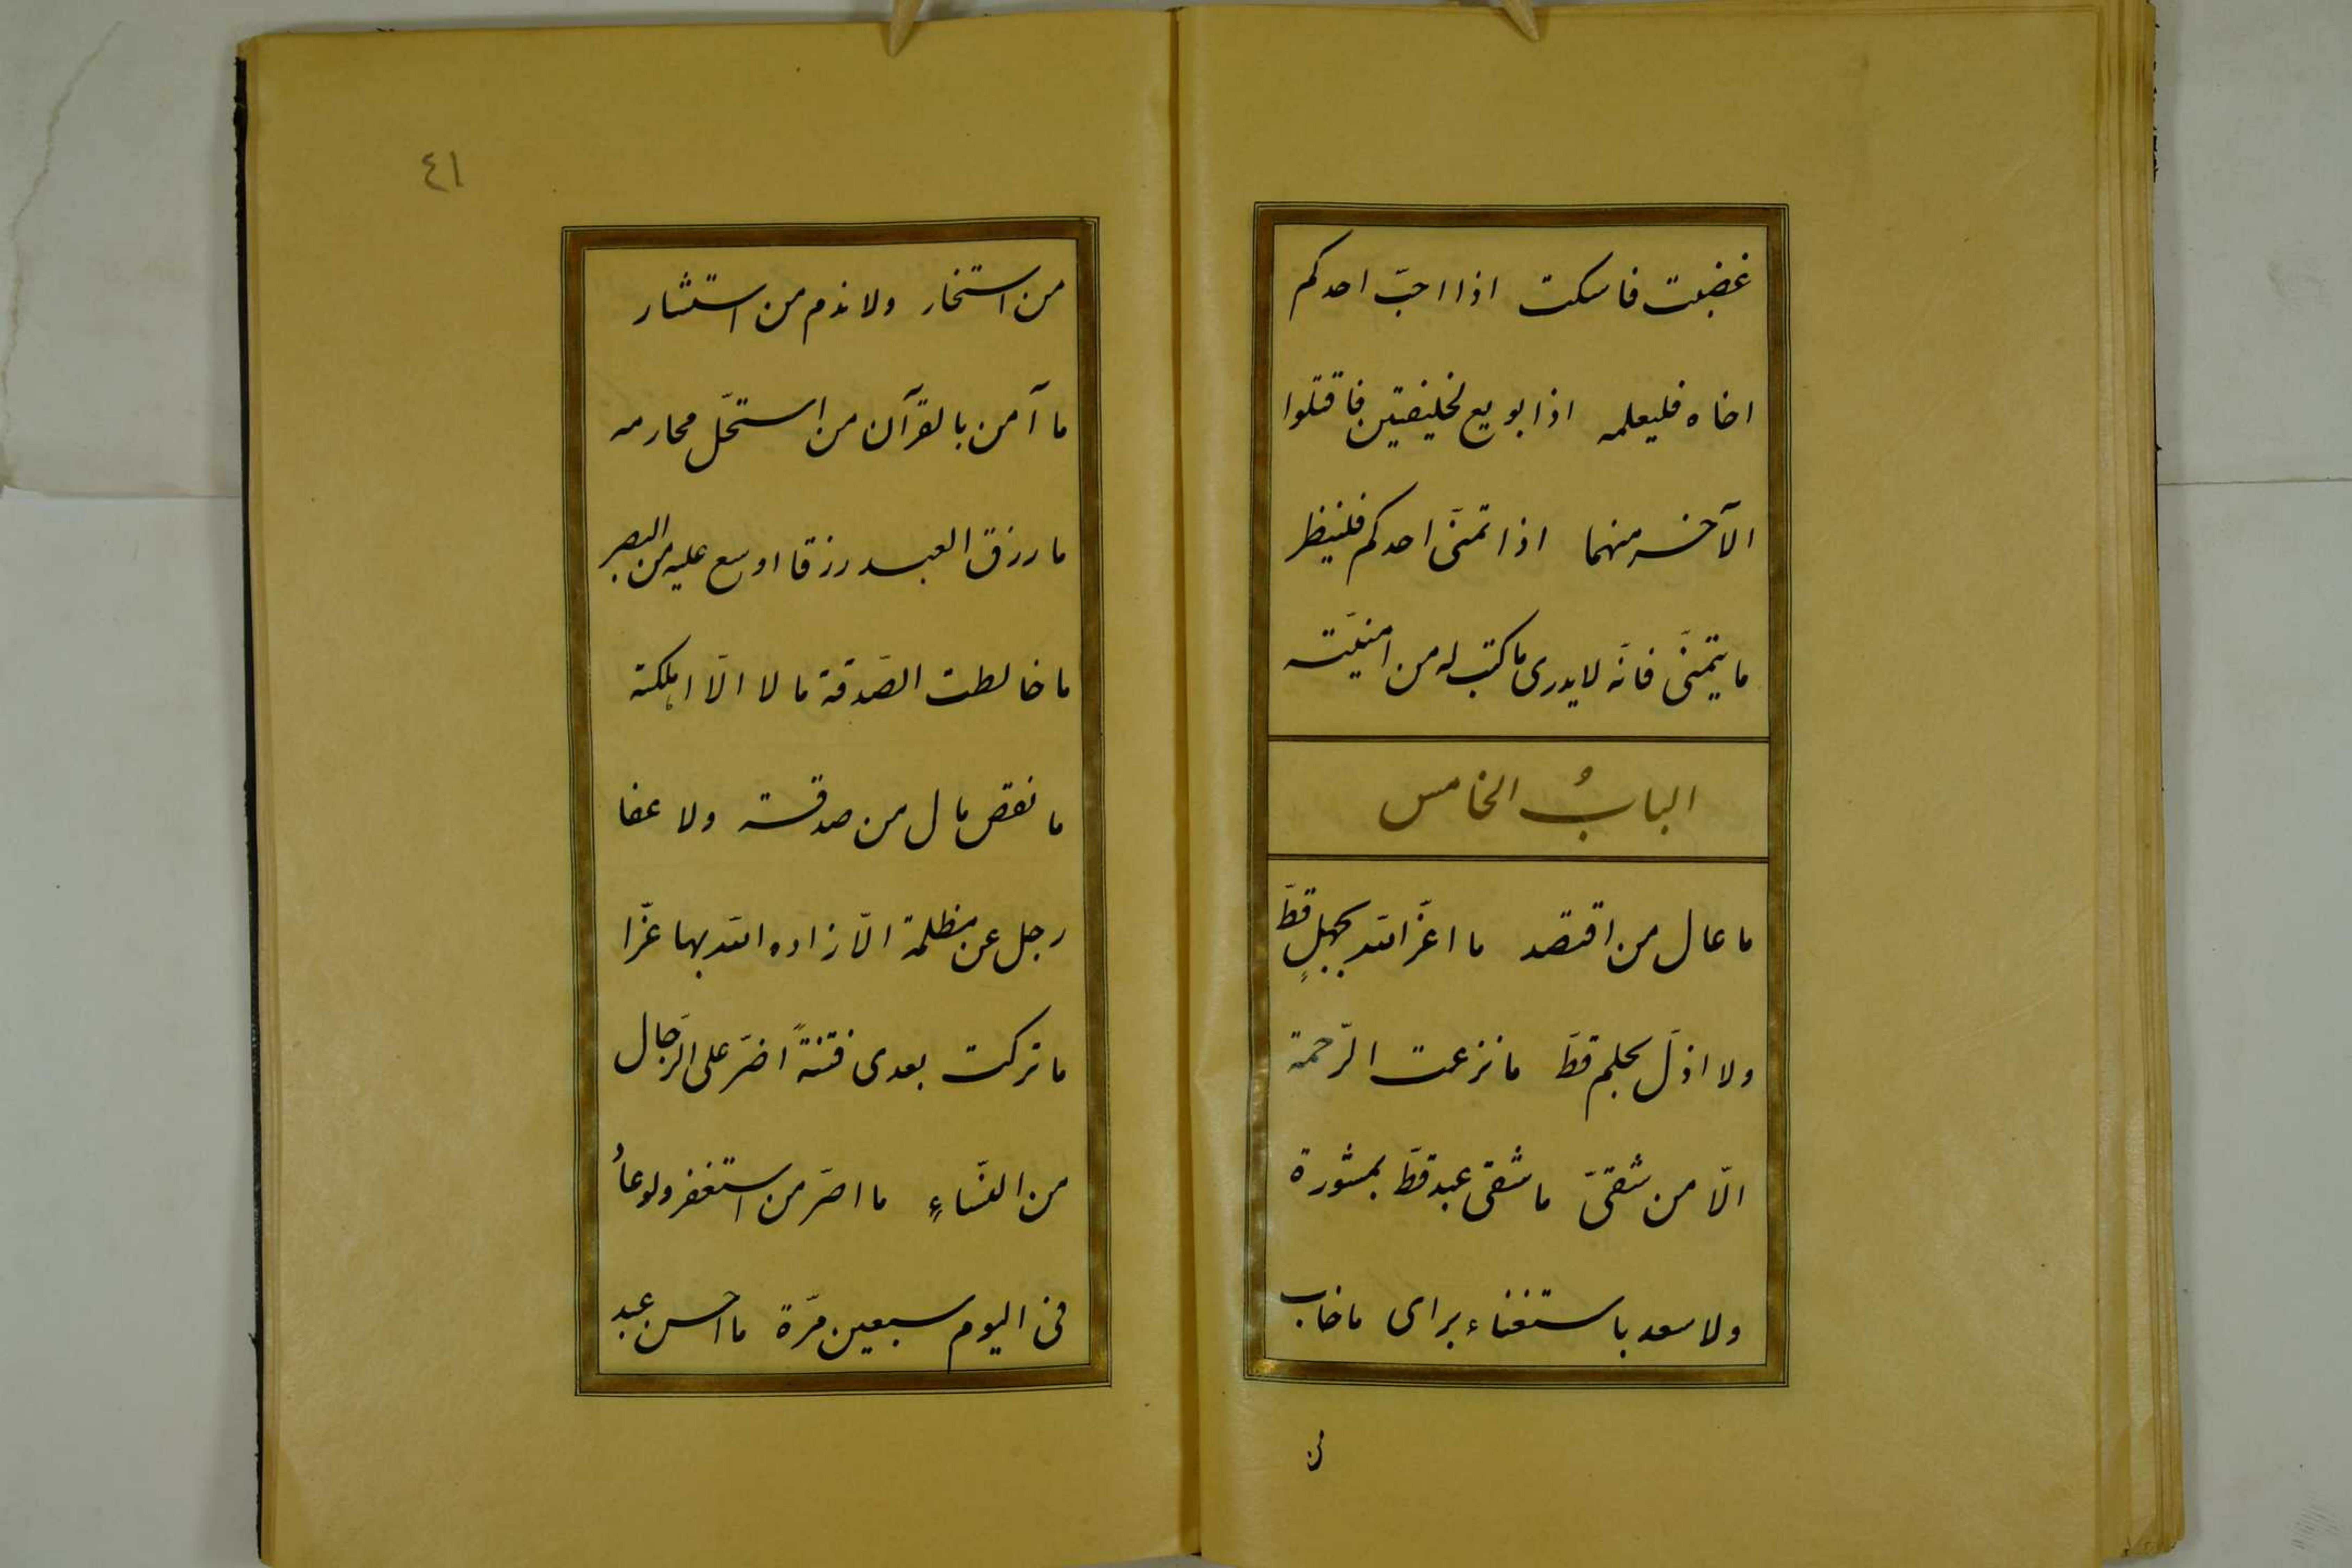 غضبت فاسكت اذا احبّ احدكم
اخاه فليعلمه اذا بويع لخليفتين فاقتلوا
الآخر منهما اذا تمنّى احدكم فلينظر
ما يتمنّى فانّه لا يدرى ما كتب له من امنيّته
البابُ الخامس
ما عال من اقتصد ما اعزّ الله بجهلٍ قطّ
ولا اذلّ بحلم قطّ ما نزعت الرّحمة
الّا من شقىّ ما شقى عبد قطّ بمشورة
ولا سعد باستغناء براى ما خاب
من
٤١
من استخار ولا ندم من استشار
ما آمن بالقرآن من استحلّ محارمه
ما رزق العبد رزقا اوسع عليه من الصبر
ما خالطت الصّدقة مالا الّا اهلكته
ما نقص مال من صدقة ولا عفا
رجل عن مظلمة الّا زاده الله بها عزّا
ما تركت بعدى فتنةً اضرّ على الرّجال
من النّساءِ ما اصرّ من استغفر ولو عادُ
فى اليوم سبعين مرّة ما احسن عبد